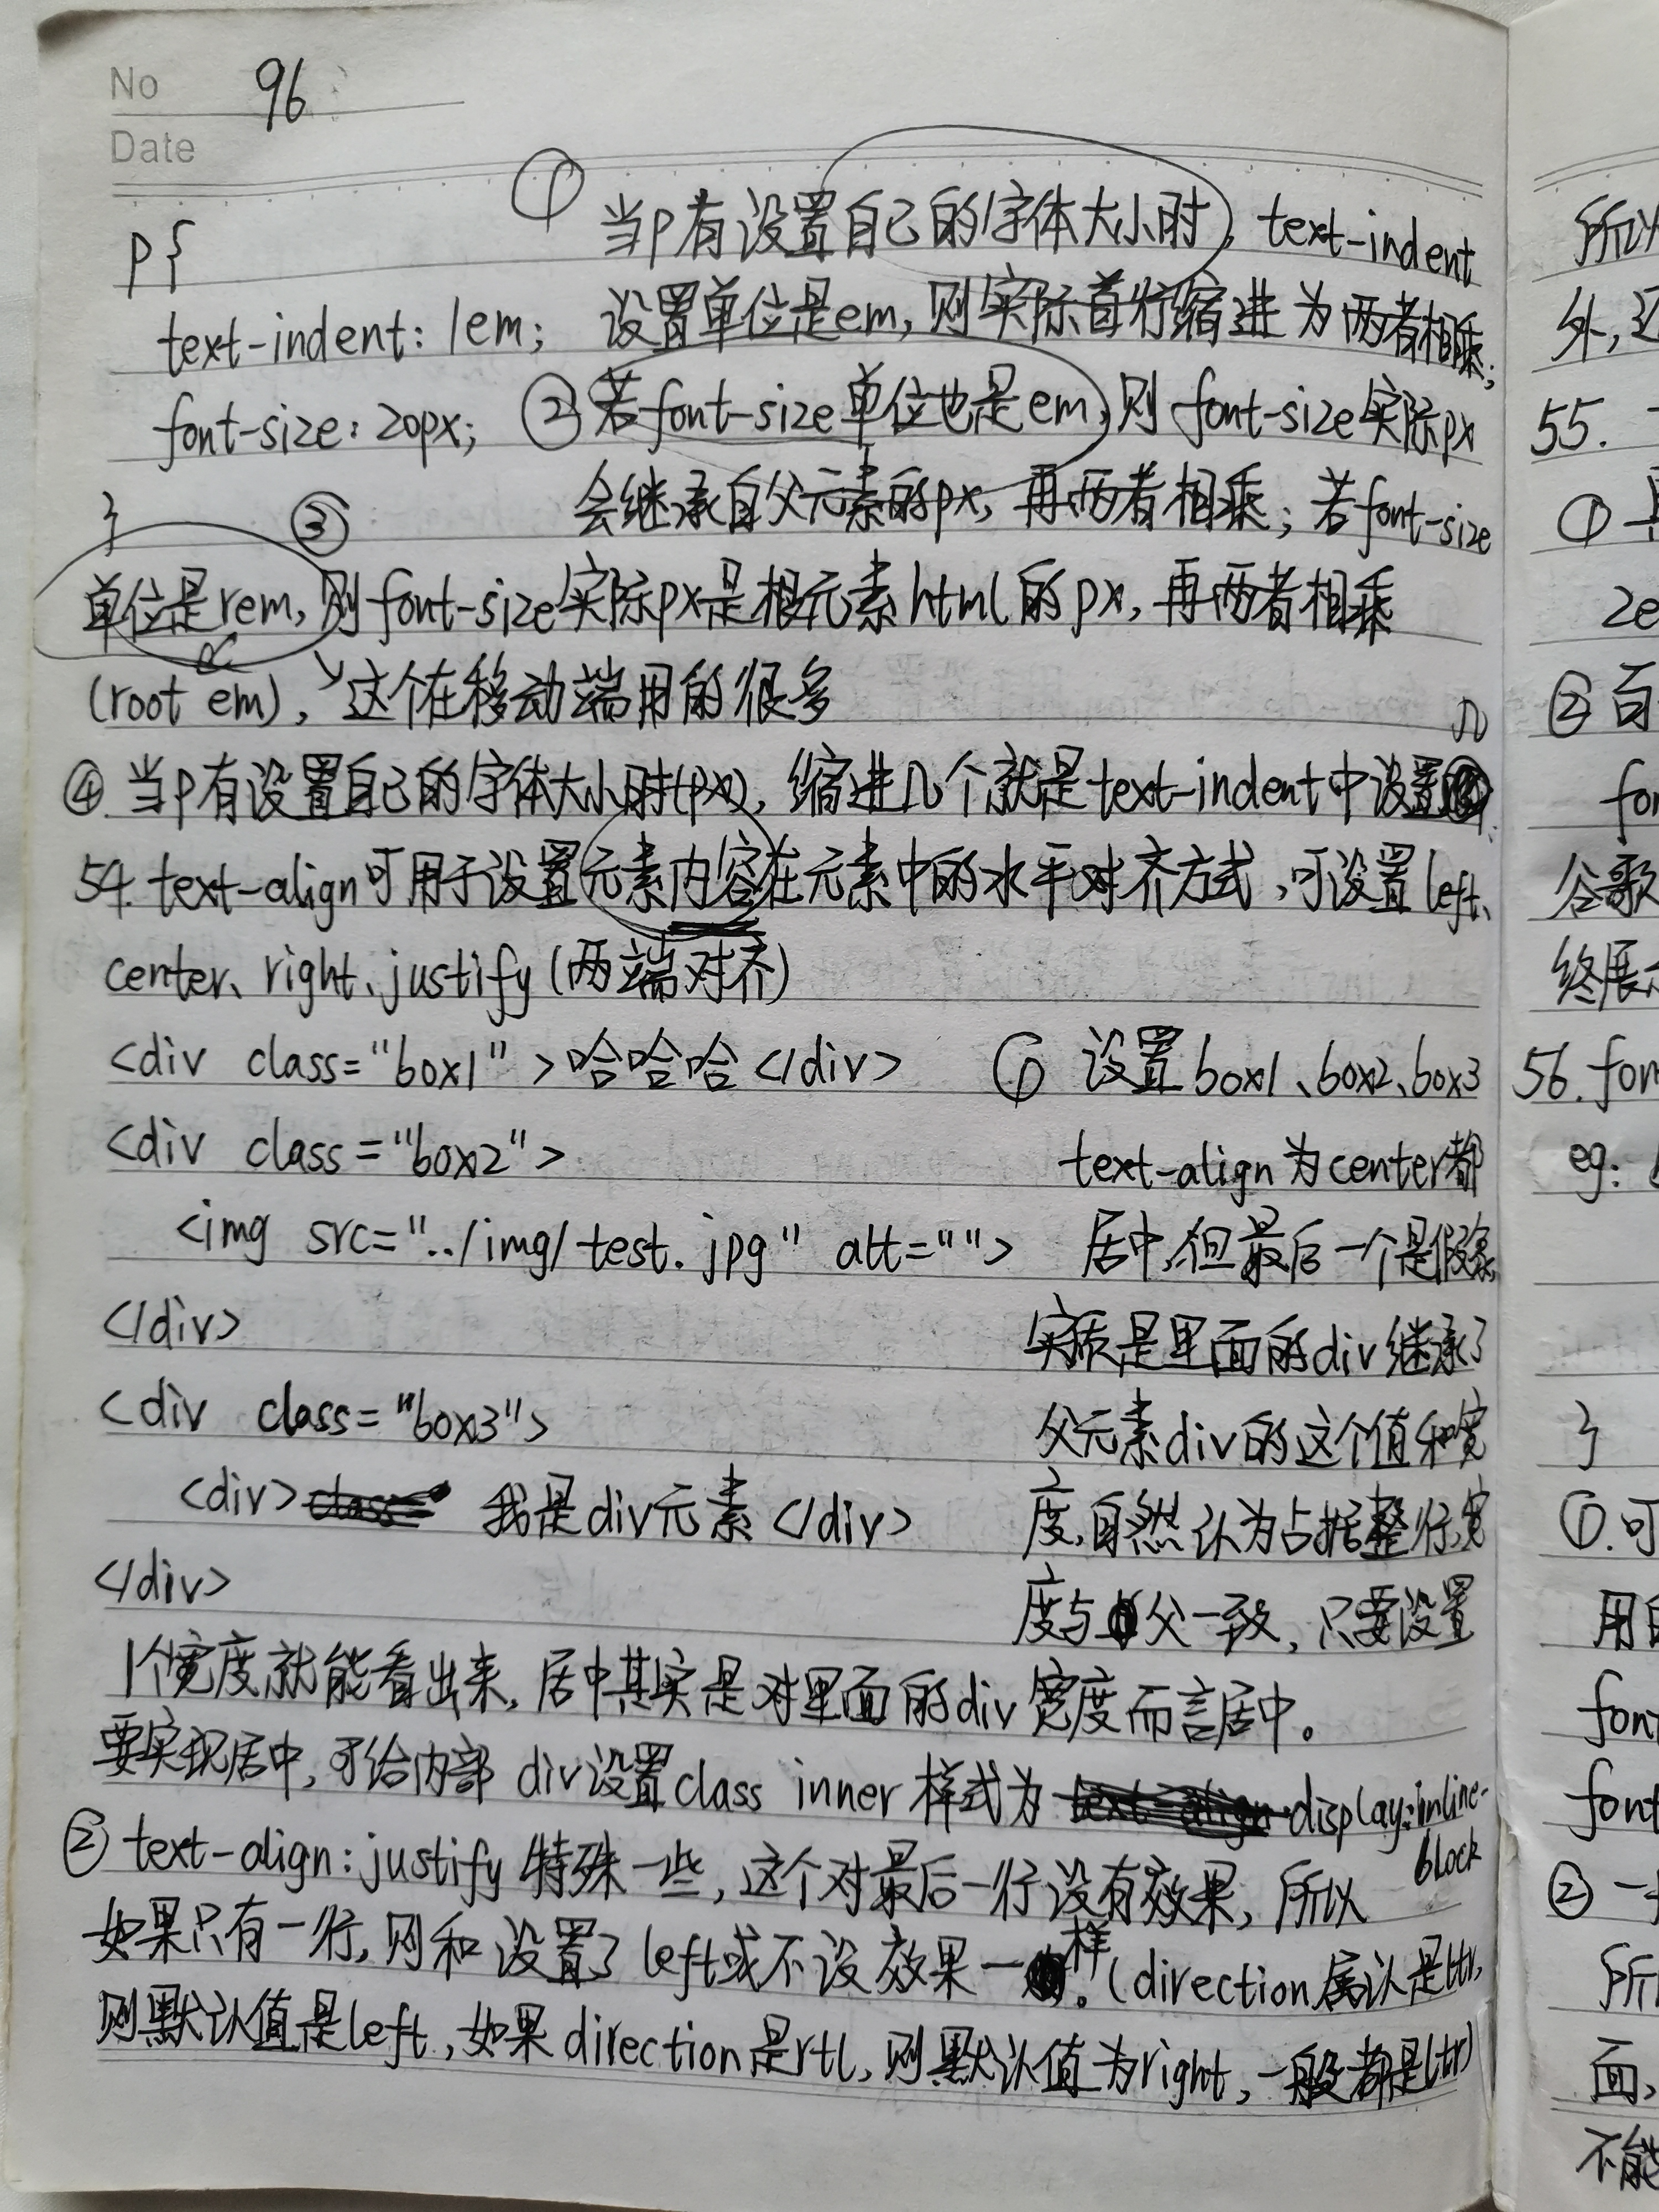 No 96
Date
p{
text-indent: 1em;
font-size: 20px;
}
① 当p有设置自己的字体大小时, text-indent
设置单位是em, 则实际首行缩进为两者相乘;
②若font-size单位也是em, 则font-size实际px
会继承自父元素的px, 再两者相乘; 若font-size
③
单位是rem, 则font-size实际px是根元素html的px, 再两者相乘
(root em), 这个在移动端用的很多
④ 当p有设置自己的字体大小时(px), 缩进几个就是text-indent中设置几
54. text-align可用于设置元素内容在元素中的水平对齐方式, 可设置left、
center、right、justify (两端对齐)
<div class="box1">哈哈哈</div>
<div class="box2">
<img src="../img/test.jpg" alt="">
</div>
<div class="box3">
<div> 我是div元素</div>
</div>
① 设置box1、box2、box3
text-align为center都
居中, 但最后一个是假象,
实质是里面的div继承了
父元素div的这个值和宽
度, 自然认为占据整行, 宽
度与父一致, 只要设置
1个宽度就能看出来, 居中其实是对里面的div宽度而言居中。
要实现居中, 可给内部 div设置class inner 样式为 display: inline-
block
② text-align: justify 特殊一些, 这个对最后一行没有效果, 所以
如果只有一行, 则和设置了left或不设效果一样。(direction 默认是ltr,
则默认值是left, 如果direction是rtl, 则默认值为right, 一般都是ltr)
所以
外,
55.
①
2e
② 百
fon
谷歌
终展
56. fon
eg:
}
①. 可
用
font
font
② 一
所
面,
不能